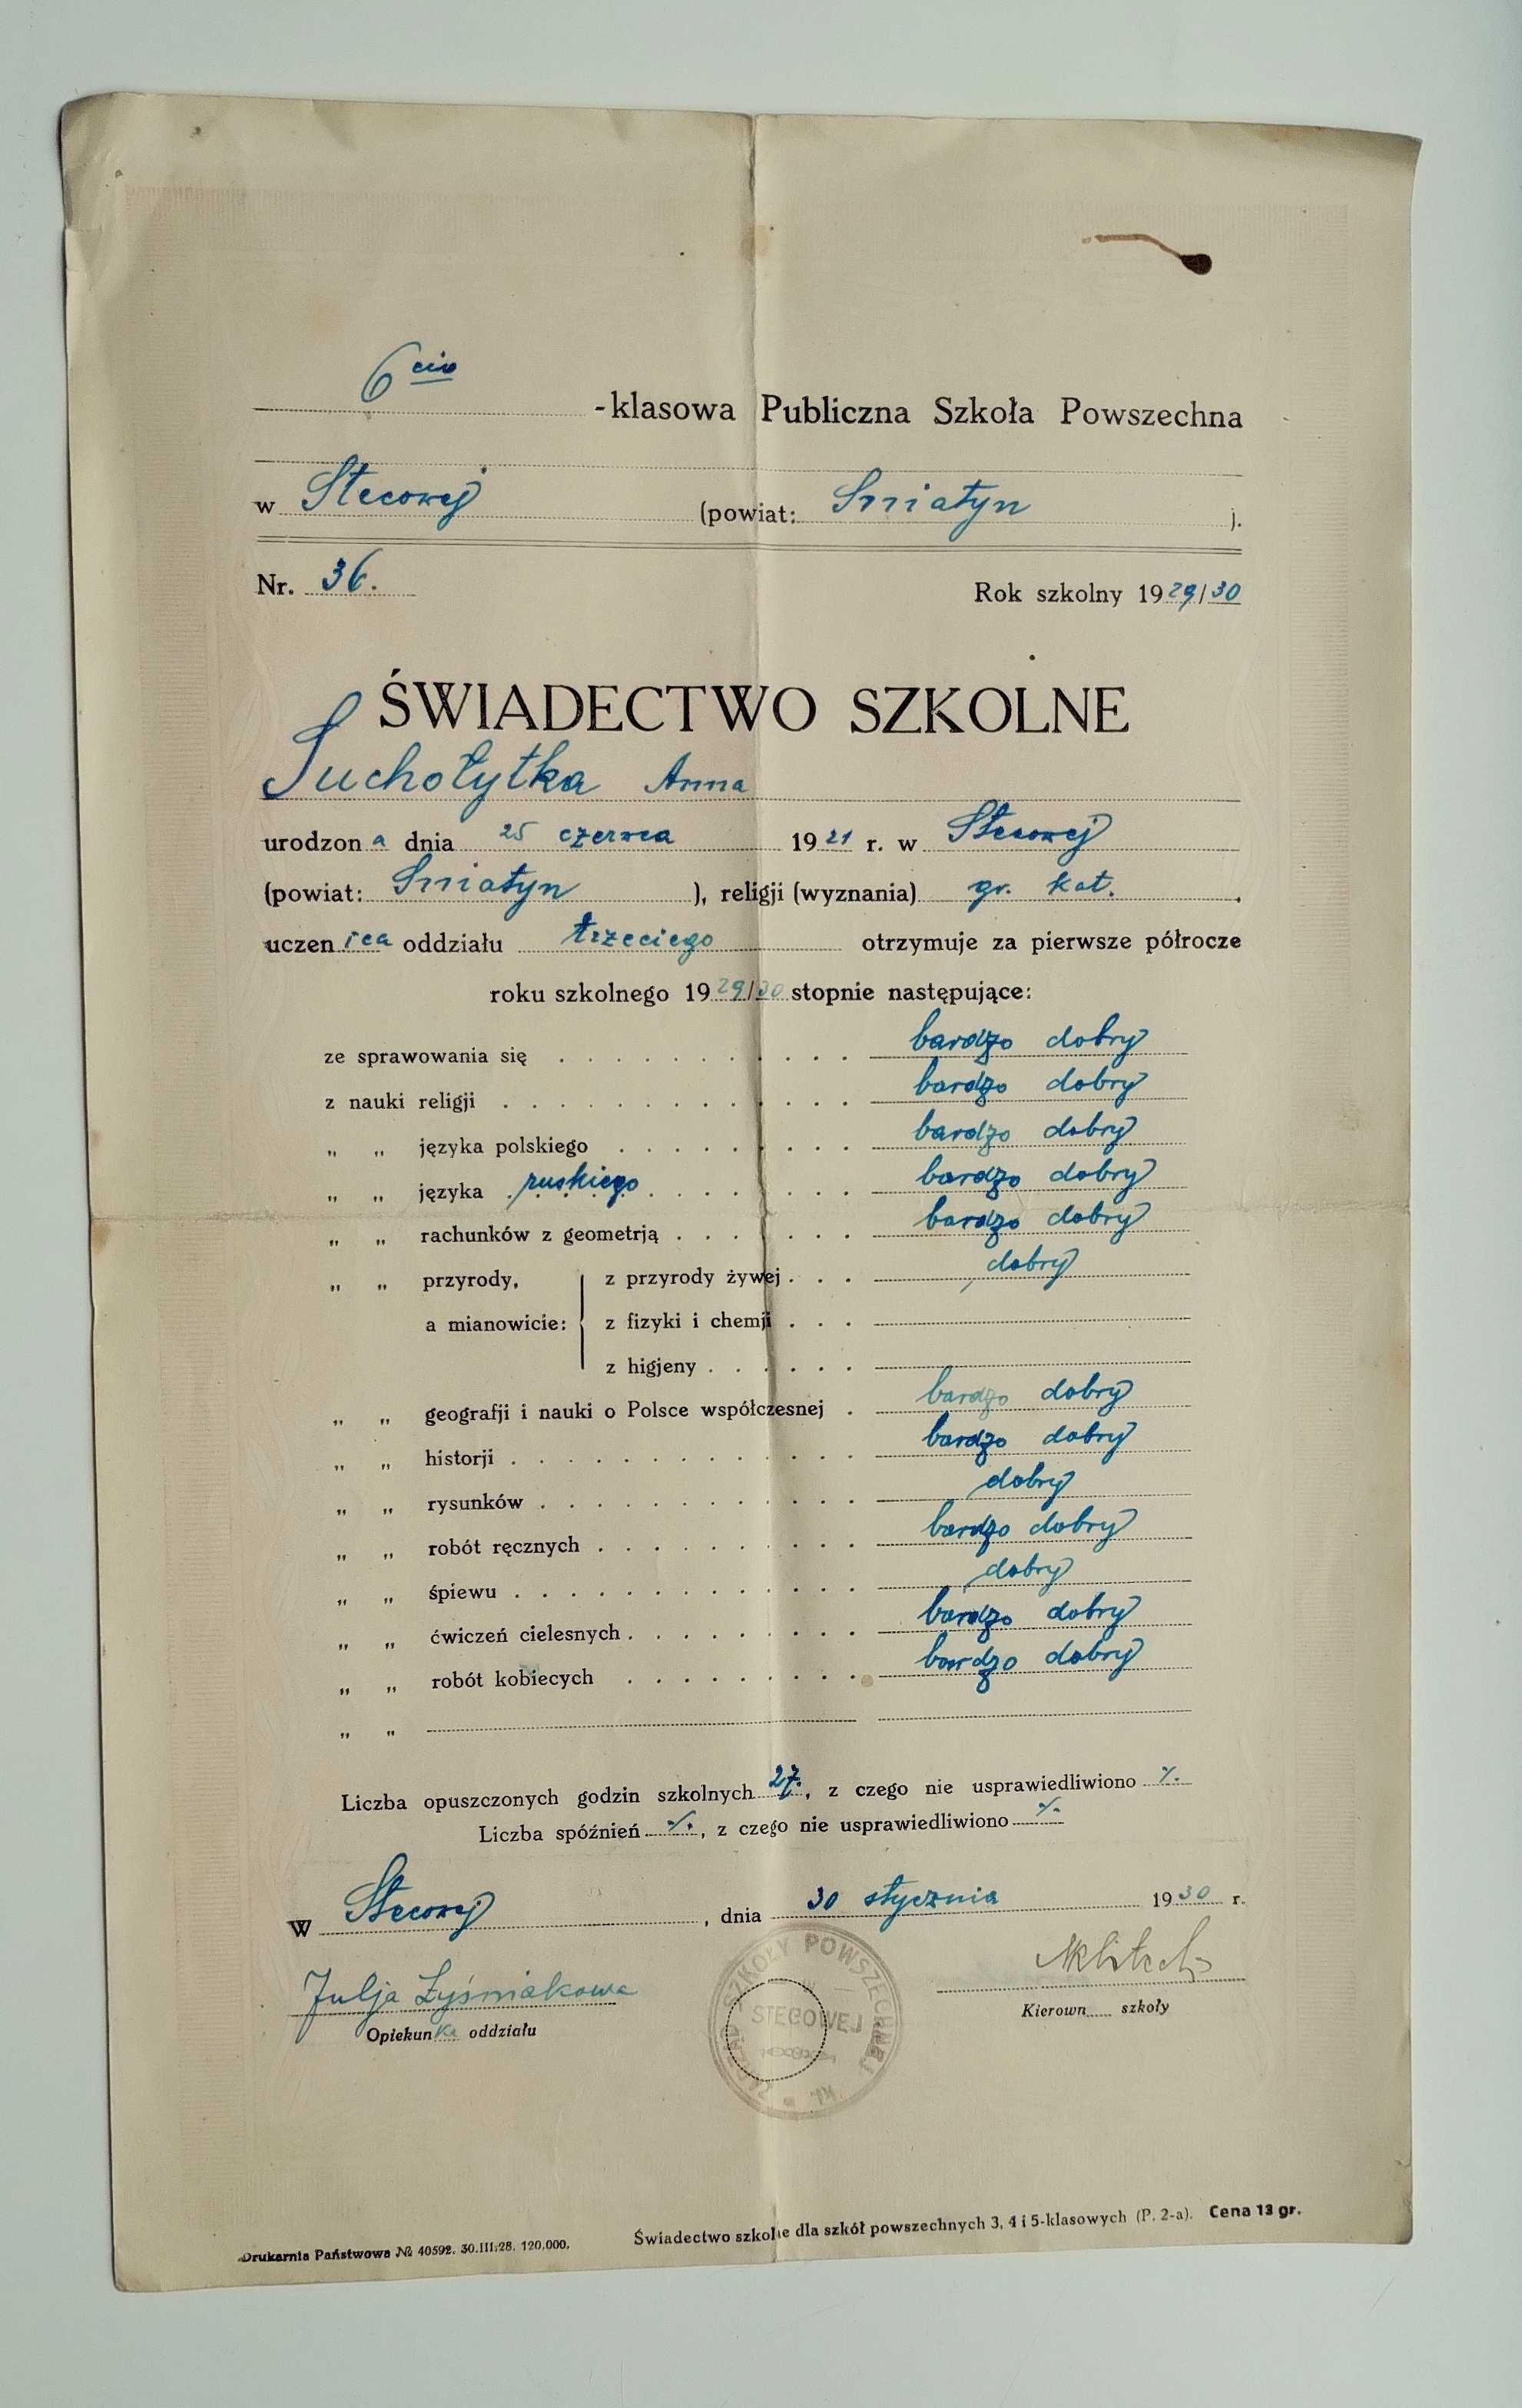 6cio -klasowa Publiczna Szkoła Powszechna
w Stecowej (powiat: Sniatyn ).
Nr. 36. Rok szkolny 1929/30
ŚWIADECTWO SZKOLNE
Suchołytka Anna
urodzona dnia 25 czerwca 1921 r. w Stecowej
(powiat: Sniatyn ), religji (wyznania) gr. kat.
uczenica oddziału trzeciego otrzymuje za pierwsze półrocze
roku szkolnego 1929/30 stopnie następujące:
ze sprawowania się . . . bardzo dobry
z nauki religji . . . bardzo dobry
„ „ języka polskiego . . . bardzo dobry
„ „ języka ruskiego . . . bardzo dobry
„ „ rachunków z geometrją . . . bardzo dobry
„ „ przyrody, z przyrody żywej . . . dobry
a mianowicie: z fizyki i chemji . . .
z higjeny . . .
„ „ geografji i nauki o Polsce współczesnej . bardzo dobry
„ „ historji . . . bardzo dobry
„ „ rysunków . . . dobry
„ „ robót ręcznych . . . bardzo dobry
„ „ śpiewu . . . dobry
„ „ ćwiczeń cielesnych . . . bardzo dobry
„ „ robót kobiecych . . . bardzo dobry
„ „
Liczba opuszczonych godzin szkolnych 27., z czego nie usprawiedliwiono ⁒
Liczba spóźnień ⁒, z czego nie usprawiedliwiono ⁒
W Stecowej, dnia 30 stycznia 1930 r.
Julja Łyśniakowa
Opiekunka oddziału
Kierown szkoły
SZKOŁY POWSZECHNEJ
STECOWEJ
Drukarnia Państwowa № 40592. 30.III.28. 120.000.
Świadectwo szkolne dla szkół powszechnych 3, 4 i 5-klasowych (P. 2-a). Cena 13 gr.